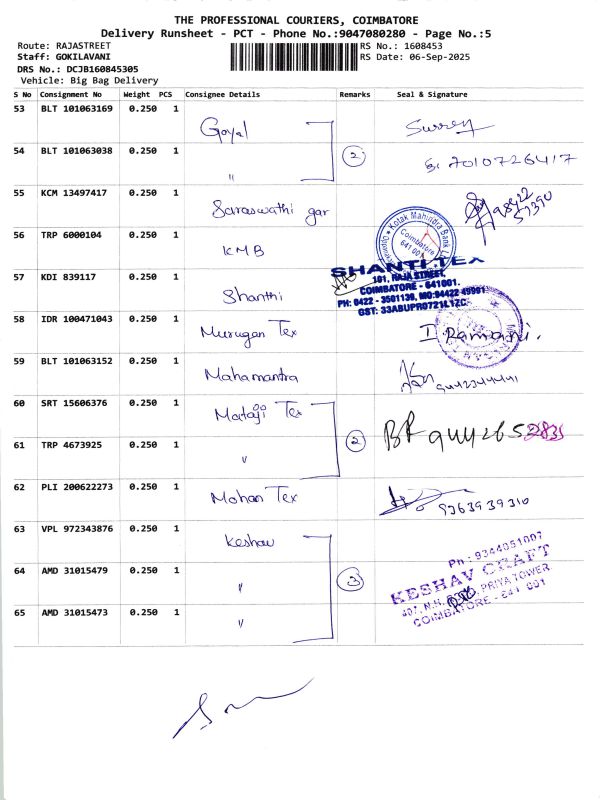 THE PROFESSIONAL COURIERS, COIMBATORE
Delivery Runsheet - PCT - Phone No.:9047080280 - Page No.:5
Route: RAJASTREET
RS No.: 1608453
Staff: GOKILAVANI
RS Date: 06-Sep-2025
DRS No.: DCJB160845305
Vehicle: Big Bag Delivery
S No Consignment No Weight PCS Consignee Details Remarks Seal & Signature
53 BLT 101063169 0.250 1 Goyal
54 BLT 101063038 0.250 1 " 2 7010726417
55 KCM 13497417 0.250 1 Saraswathi gar
56 TRP 6000104 0.250 1 KMB
Kotak Mahindra Bank
Coimbatore
641 001
57 KDI 839117 0.250 1 Shanthi
SHANTI TEX
101, RAJA STREET,
COIMBATORE - 641001.
PH: 0422 - 3501139, MO:94422 49991
GST: 33ABUPR0721L1ZC
58 IDR 100471043 0.250 1 Murugan Tex I Ramani.
59 BLT 101063152 0.250 1 Mahamantra
60 SRT 15606376 0.250 1 Mataji Tex
61 TRP 4673925 0.250 1 " 2
62 PLI 200622273 0.250 1 Mohan Tex 9363939310
63 VPL 972343876 0.250 1 Keshav
64 AMD 31015479 0.250 1 " 3
65 AMD 31015473 0.250 1 "
Ph : 9344051007
KESHAV CRAFT
PRIYA TOWER
COIMBATORE - 641 001